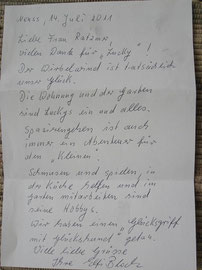 Neuss, 14. Juli 2021
Liebe Frau Ratzmer,
vielen Dank für „Lucky"!
Der Wirbelwind ist tatsächlich
unser Glück.
Die Wohnung und der Garten
sind Luckys ein und alles.
Spazierengehen ist auch
immer ein Abenteuer für
den „Kleinen".
Schmusen und spielen, in
der Küche helfen und im
Garten mitarbeiten sind
seine Hobbys.
Wir haben einen „Glücksgriff
mit Glückshund" getan.
Viele liebe Grüsse
Ihre